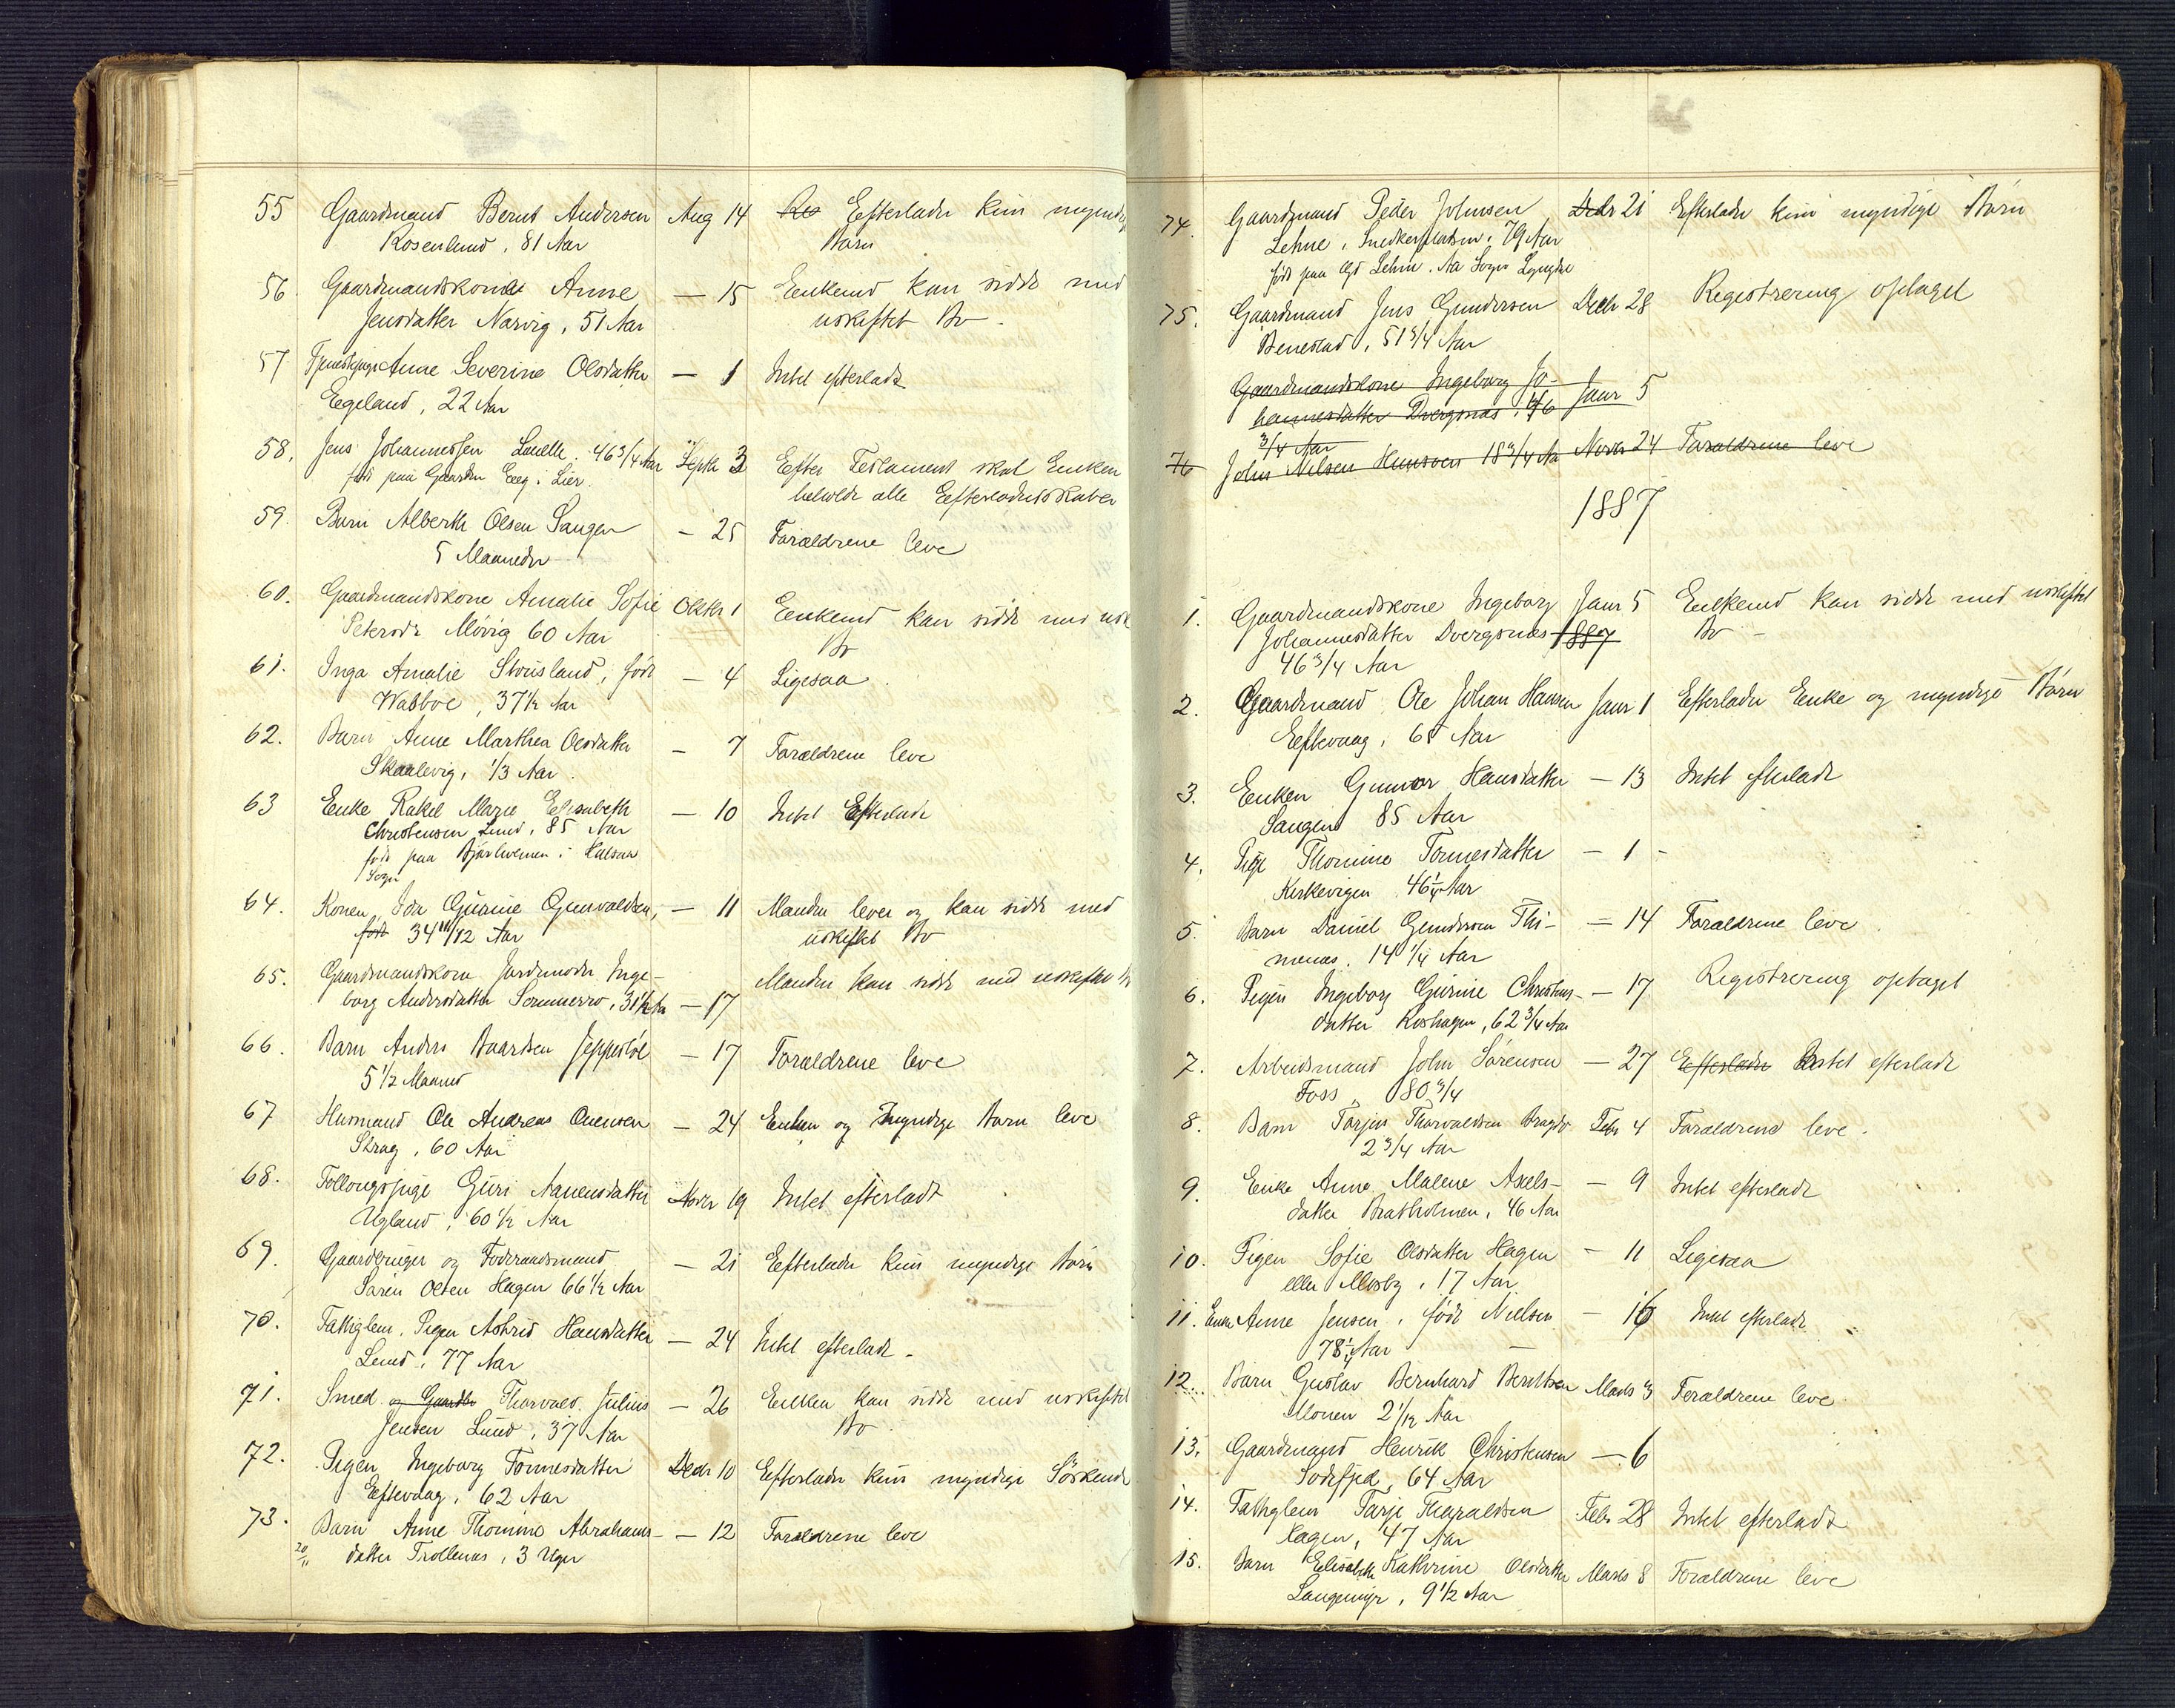 55 Gaardmand Bernt Andersen Aug 14 Efterlader kun myndig
Rosenlund, 81 Aar Børn
56. Gaardmandskone Anne — 15 Enkemand kan sidde med
Jensdatter Narvig, 51 Aar uskiftet Bo.
57 Tjenestepige Anne Severine Olsdatter — 1 Intet efterladt
Egeland, 22 Aar
58. Jens Johannessen Lunde. 46 3/4 Aar Septbr 3 Efter Testament skal Enken
født paa Gaarden Eeg i Lier. beholde alle Efterladenskaber
59. Barn Alberth Olsen Sangen — 25 Forældrene leve
5 Maaneder
60. Gaardmandskone Amalie Sofie Oktbr 1 Enkemd kan sidde med usk
Petersdr Møvig 60 Aar Bo
61. Inga Amalie Stousland, født — 4 Ligesaa.
Watboe, 37 1/2 Aar
62. Barn Anne Marthea Olsdatter — 7 Forældrene leve
Skaalevig, 1/3 Aar.
63 Enke Rakel Marie Elisabeth — 10 Intet Efterladt
Christensen Lund, 85 Aar
født paa i
Sogn
64. Konen Ida Gurine Gunvaldsen, — 11 Manden lever og kan sidde med
født 34 11/12 Aar uskiftet Bo
65. Gaardmandskone Jordemoder Inge- Manden kan sidde med uskiftet B
borg Andersdatter Sommerro, 31 1/2 Aar — 17
66. Barn Anders Baardsen Jeppestøl — 17 Forældrene leve
5 1/2 Maaned
67 Husmand Ole Andreas Ouensen — 24 Enken og myndige Børn leve
Strag, 60 Aar
68. Follougspige Guri Aanensdatter Novbr 19 Intet efterladt
Ugland, 60 1/2 Aar
69. Gaardbruger og Føderaadsmand — 21 Efterlader kun myndige Børn
Søren Olsen Hagen 66 1/2 Aar
70. Fattiglem, Pigen Astrid Hansdatter — 24 Intet efterladt.
Lund, 77 Aar
71. Smed og Gaardbr Thorvald Julius — 26 Enken kan sidde med uskiftet
Jensen Lund, 37 Aar Bo.
72. Pigen Ingeborg Tønnesdatter Decbr 10 Efterlader kun myndige Söskende
Eftevaag, 62 Aar
73. Barn Anne Thomine Abrahams- — 12 Forældrene leve
20/11 datter Trollenes, 3 Uger
74. Gaardmand Peder Johnsen Decbr 21 Efterlader kun myndige Børn
Lehne, Snedkerpladsen, 79 Aar
født paa Gd Lehne. Aa Sogn Lyngdal
75. Gaardmand Jens Gundersen Decbr 28 Registrering optaget
Benestad, 51 3/4 Aar
Gaardmandskone Ingeborg Jo- Janr 5
hannesdatter Dvergsnæs, 46
3/4 Aar
76 John Nilsen Hunsøen 18 3/4 Aar Novbr 24 Forældrene leve
1887
1. Gaardmandskone Ingeborg Janr 5 Enkemd kan sidde med uskiftet
Johannesdatter Dvergsnæs 1887 Bo -
46 3/4 Aar
2. Gaardmand Ole Johan Hansen Janr 1 Efterlader Enke og myndige Børn
Eftevaag, 65 Aar
3. Enken Gunvor Hansdatter — 13 Intet efterladt
Sangen 85 Aar
4. Pige Thomine Tønnesdatter — 1 -
Kirkevigen 46 1/4 Aar
5. Barn Daniel Gundersen Thi- — 14 Forældrene leve.
menes. 14 1/4 Aar
6. Pigen Ingeborg Gurine Christens- — 17 Registrering optaget
datter Roshagen, 62 3/4 Aar
7. Arbeidsmand John Sørensen — 27 Efterlader Intet efterladt
Foss, 80 3/4
8. Barn Torjus Thorvaldsen Febr 4 Forældrene leve.
2 3/4 Aar
9. Enke Anne Malene Axels- — 9 Intet efterladt
datter Bratholmen, 46 Aar
10. Pigen Sofie Olsdatter Hagen — 11 Ligesaa
eller Mosby, 17 Aar
11. Enke Anne Jensen, født Nielsen — 16 Intet efterladt
78 1/4 Aar
12. Barn Gustav Bernhard Berntsen Marts 3 Forældrene leve.
Monen 2 1/12 Aar
13. Gaardmand Henrik Christensen — 6
Sodefjed, 64 Aar
14. Fattiglem Tarje Tharaldsen Febr 28 Intet efterladt
Hagen, 47 Aar
15. Barn Elisabeth Kathrine Olsdatter Marts 8 Forældrene leve
Langemyr, 9 1/2 Aar